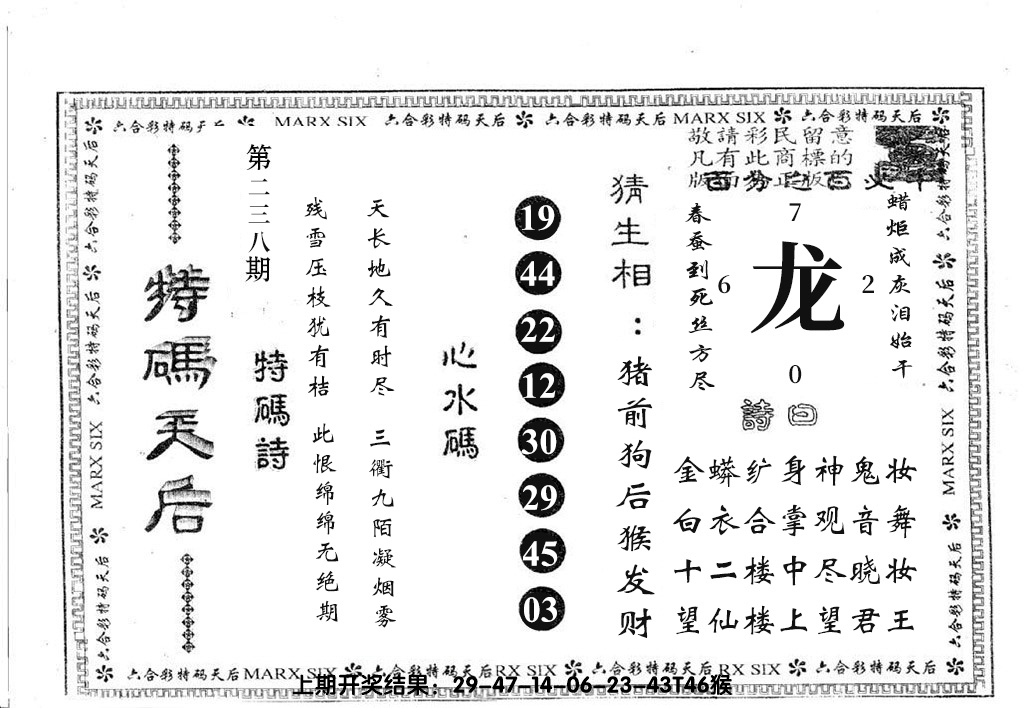 六合彩特码天后 MARX SIX 六合彩特码天后 六合彩特码天后 MARX SIX 六合彩特码天后
敬請彩民留意
凡有此商標的
版面為正版
春蚕到死丝方尽
蜡炬成灰泪始干
7
6 龙 2
0
詩曰
金蟒纩身神鬼妆
白衣合掌观音舞
十二楼中尽晓妆
望仙楼上望君王
猜生相：猪前狗后猴发财
19
44
22
12
30
29
45
03
心水碼
天长地久有时尽 三衢九陌凝烟雾
残雪压枝犹有桔 此恨绵绵无绝期
第二三八期
特碼詩
特碼天后
六合彩特码天后 六合彩特码天后 MARX SIX 六合彩特码天后
六合彩特码天后 六合彩特码天后 MARX SIX 六合彩特码天后
六合彩特码天后 MARX SIX 六合彩特码天后 RX SIX 六合彩特码天后 RX SIX 六合彩特码天后
上期开奖结果：29-47-14-06-23-43T46猴